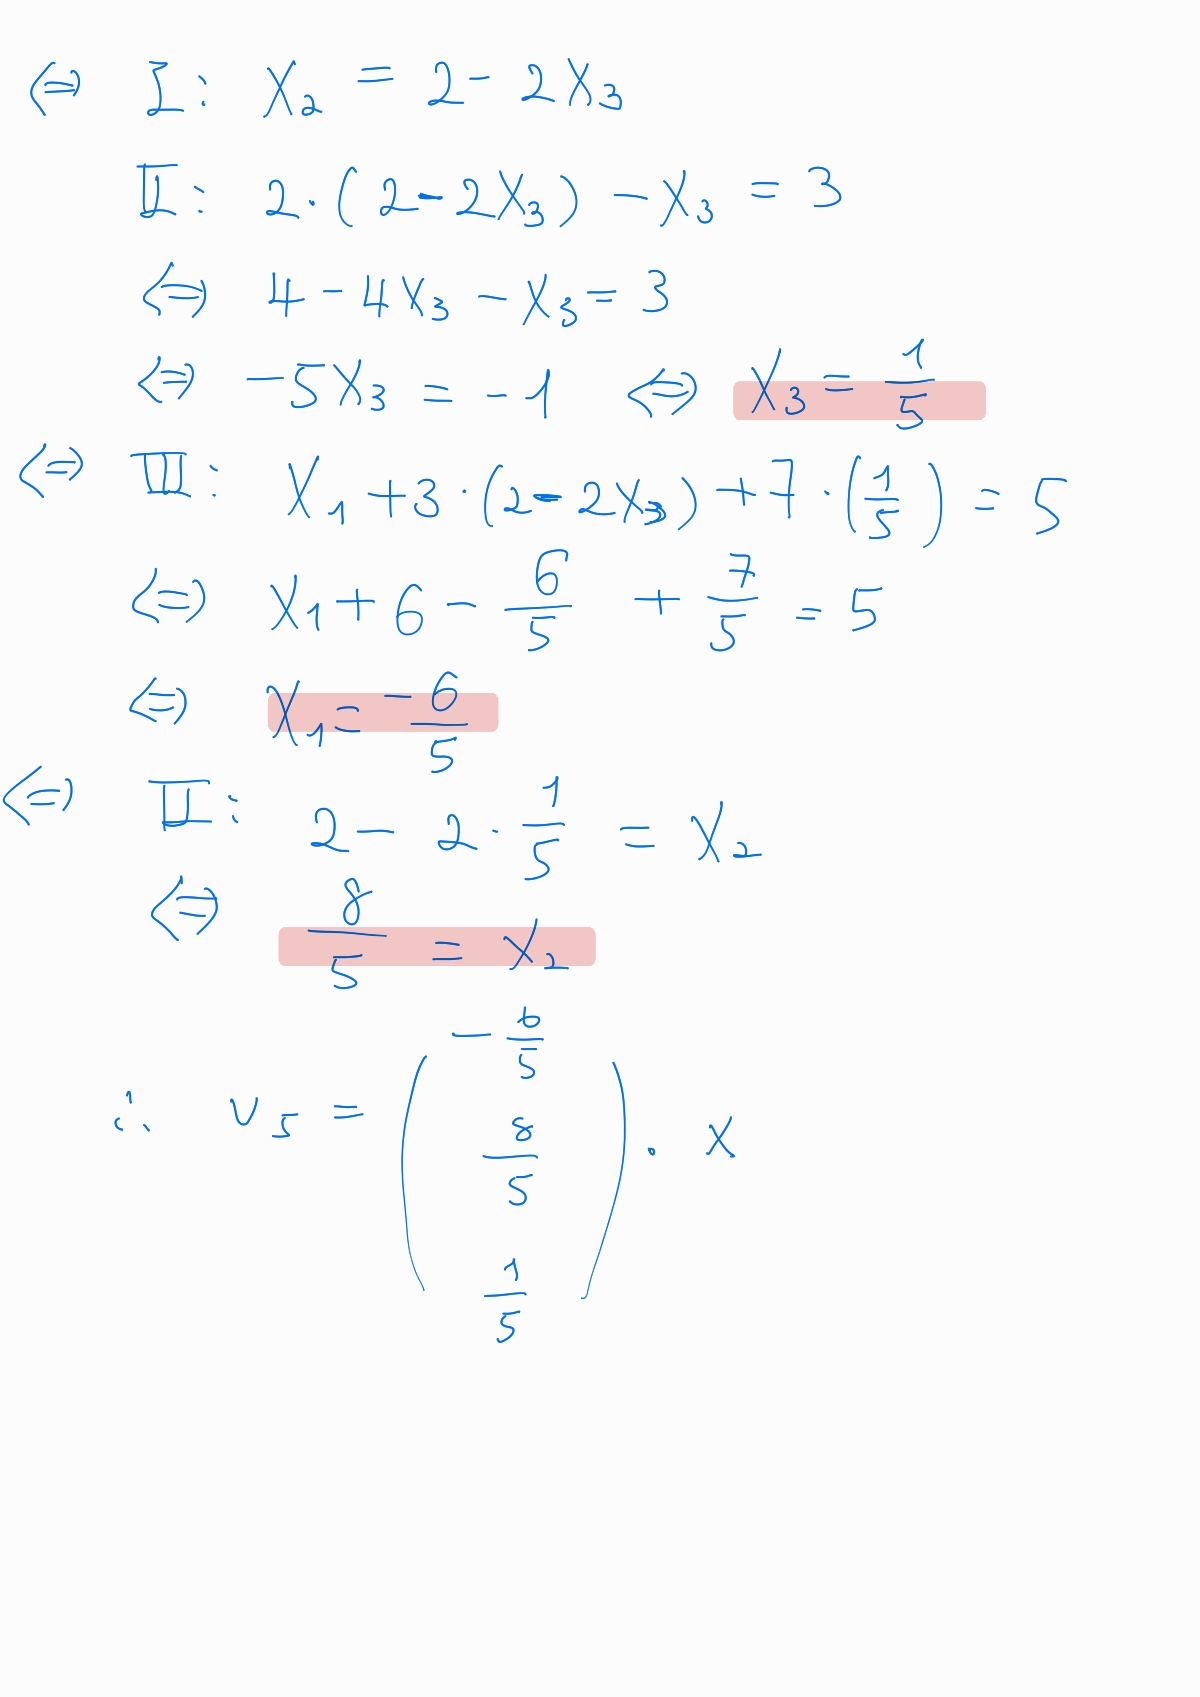 ⇔ I: X₂ = 2 - 2X₃
II: 2·(2 - 2X₃) - X₃ = 3
⇔ 4 - 4X₃ - X₃ = 3
⇔ -5X₃ = -1 ⇔ X₃ = 1/5
⇔ III: X₁ + 3·(2 - 2X₃) + 7·(1/5) = 5
⇔ X₁ + 6 - 6/5 + 7/5 = 5
⇔ X₁ = -6/5
⇔ II: 2 - 2·1/5 = X₂
⇔ 8/5 = X₂
∴ v₅ = (-6/5, 8/5, 1/5) · X